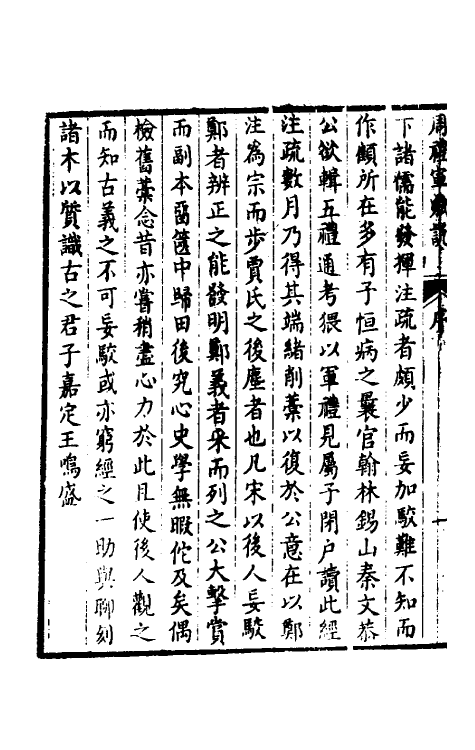 周禮軍賦說 序 一
下諸儒能發揮注疏者頗少而妄加駁難不知而
作顧所在多有予恒病之曩官翰林錫山秦文恭
公欲輯五禮通考猥以軍禮見屬予閉户讀此經
注疏數月乃得其端緒削藁以復於公意在以鄭
注為宗而步賈氏之後塵者也凡宋以後人妄駮
鄭者辨正之能發明鄭義者采而列之公大擊賞
而副本畱篋中歸田後究心史學無暇佗及矣偶
檢舊藁念昔亦嘗稍盡心力於此且使後人觀之
而知古義之不可妄駮或亦窮經之一助與聊刻
諸木以質識古之君子嘉定王鳴盛